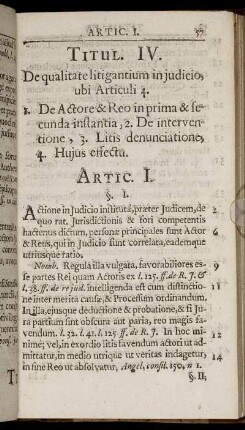 ARTIC. I. 37
TITUL. IV.
De qualitate litigantium in judicio,
ubi Articuli 4.
1. De Actore & Reo in prima & se-
cunda instantia, 2. De interven-
tione, 3. Litis denunciatione,
4. Hujus effectu.
ARTIC. I.
§. I.
Actione in Judicio instituta, præter Judicem, de 2
quo rat. Jurisdictionis & fori competentis
hactenus dictum, personæ principales sunt Actor 6
& Reus, qui in Judicio sunt correlata, eademque
utriusque ratio,
Notand. Regula illa vulgata, favorabiliores es- 9
se partes Rei quam Actoris ex l. 125. ff. de R. J. &
l. 38. ff. de re jud. intelligenda est cum distinctio- 11
ne inter merita causæ, & Processum ordinandum.
In illa, ejusque deductione & probatione, & si Ju-
ra partium sint obscura aut paria, reo magis fa-
vendum. l. 32. l. 41. l. 125. ff. de R. J. In hoc ini- 12
nime; vel, in exordio litis favendum actori ut ad-
mittatur, in medio utrique ut veritas indagetur, 14
in fine Reo ut absolvatur, Angel. consil. 150. n 1.
§. II.